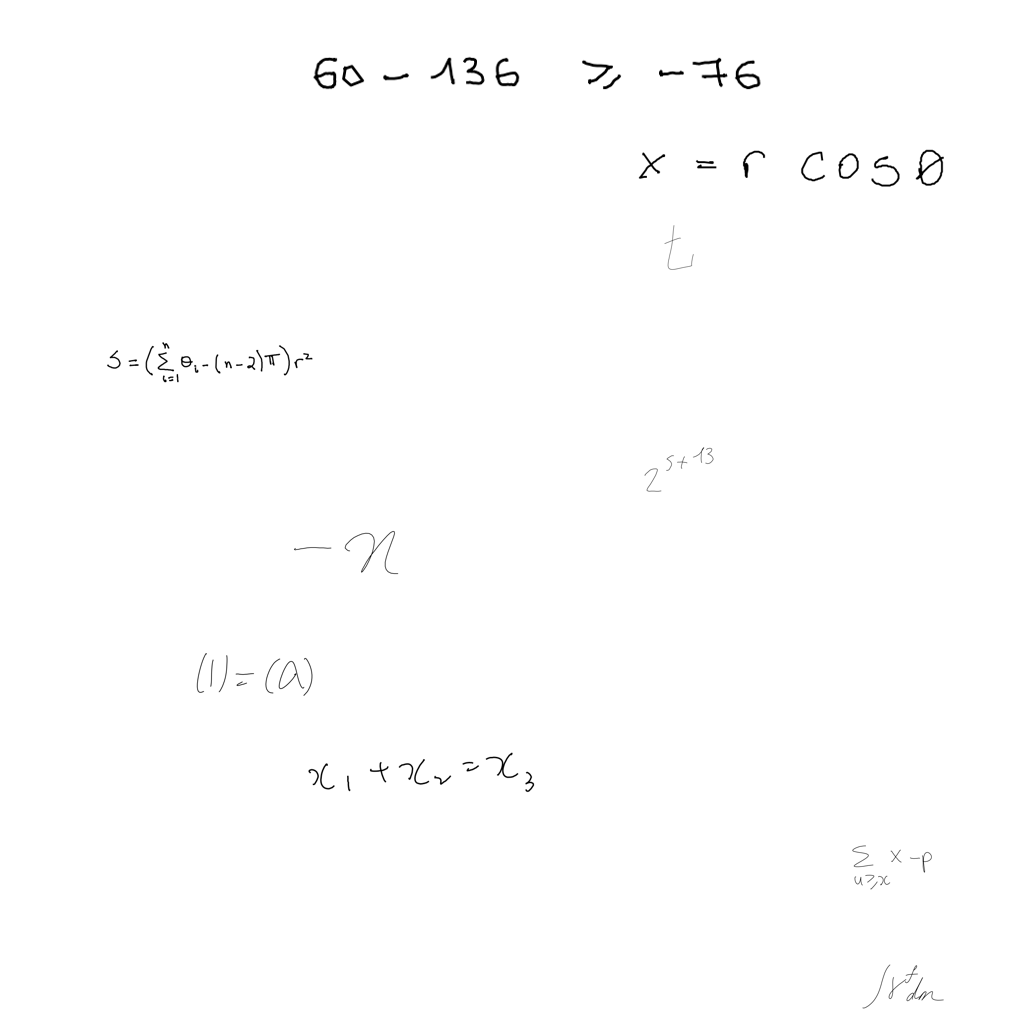 60 - 136 ⩾ -76
x = r cos θ
t
S = (∑_{i=1}^{n} θ_i - (n-2)π) r^2
2^{5+13}
-n
(1) = (a)
x_1 + x_2 = x_3
∑_{u⩾x} x - p